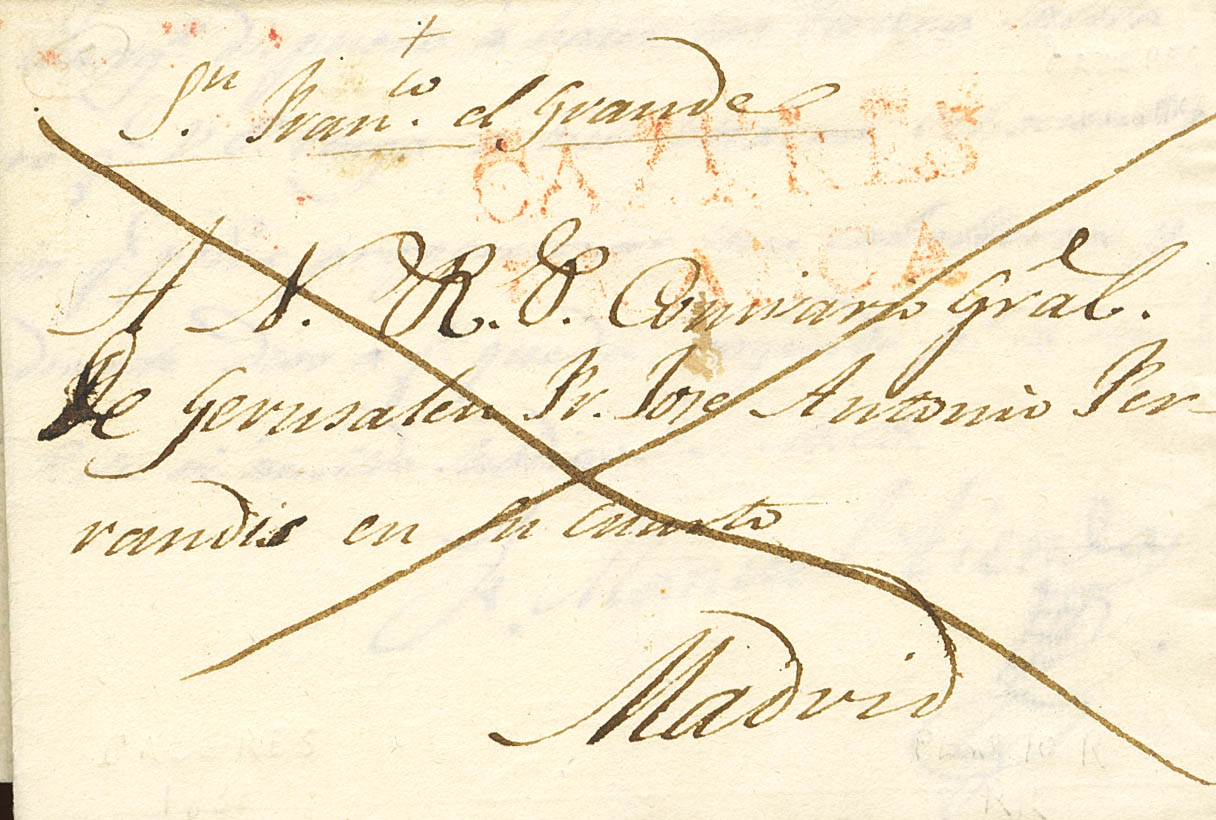 Sn. Franco. el Grande
CANARIES
FRANCA
A N. R. P. Comisario Gral.
De Gerusalen Fr. Jose Antonio Fer-
randis en su cuarto
Madrid